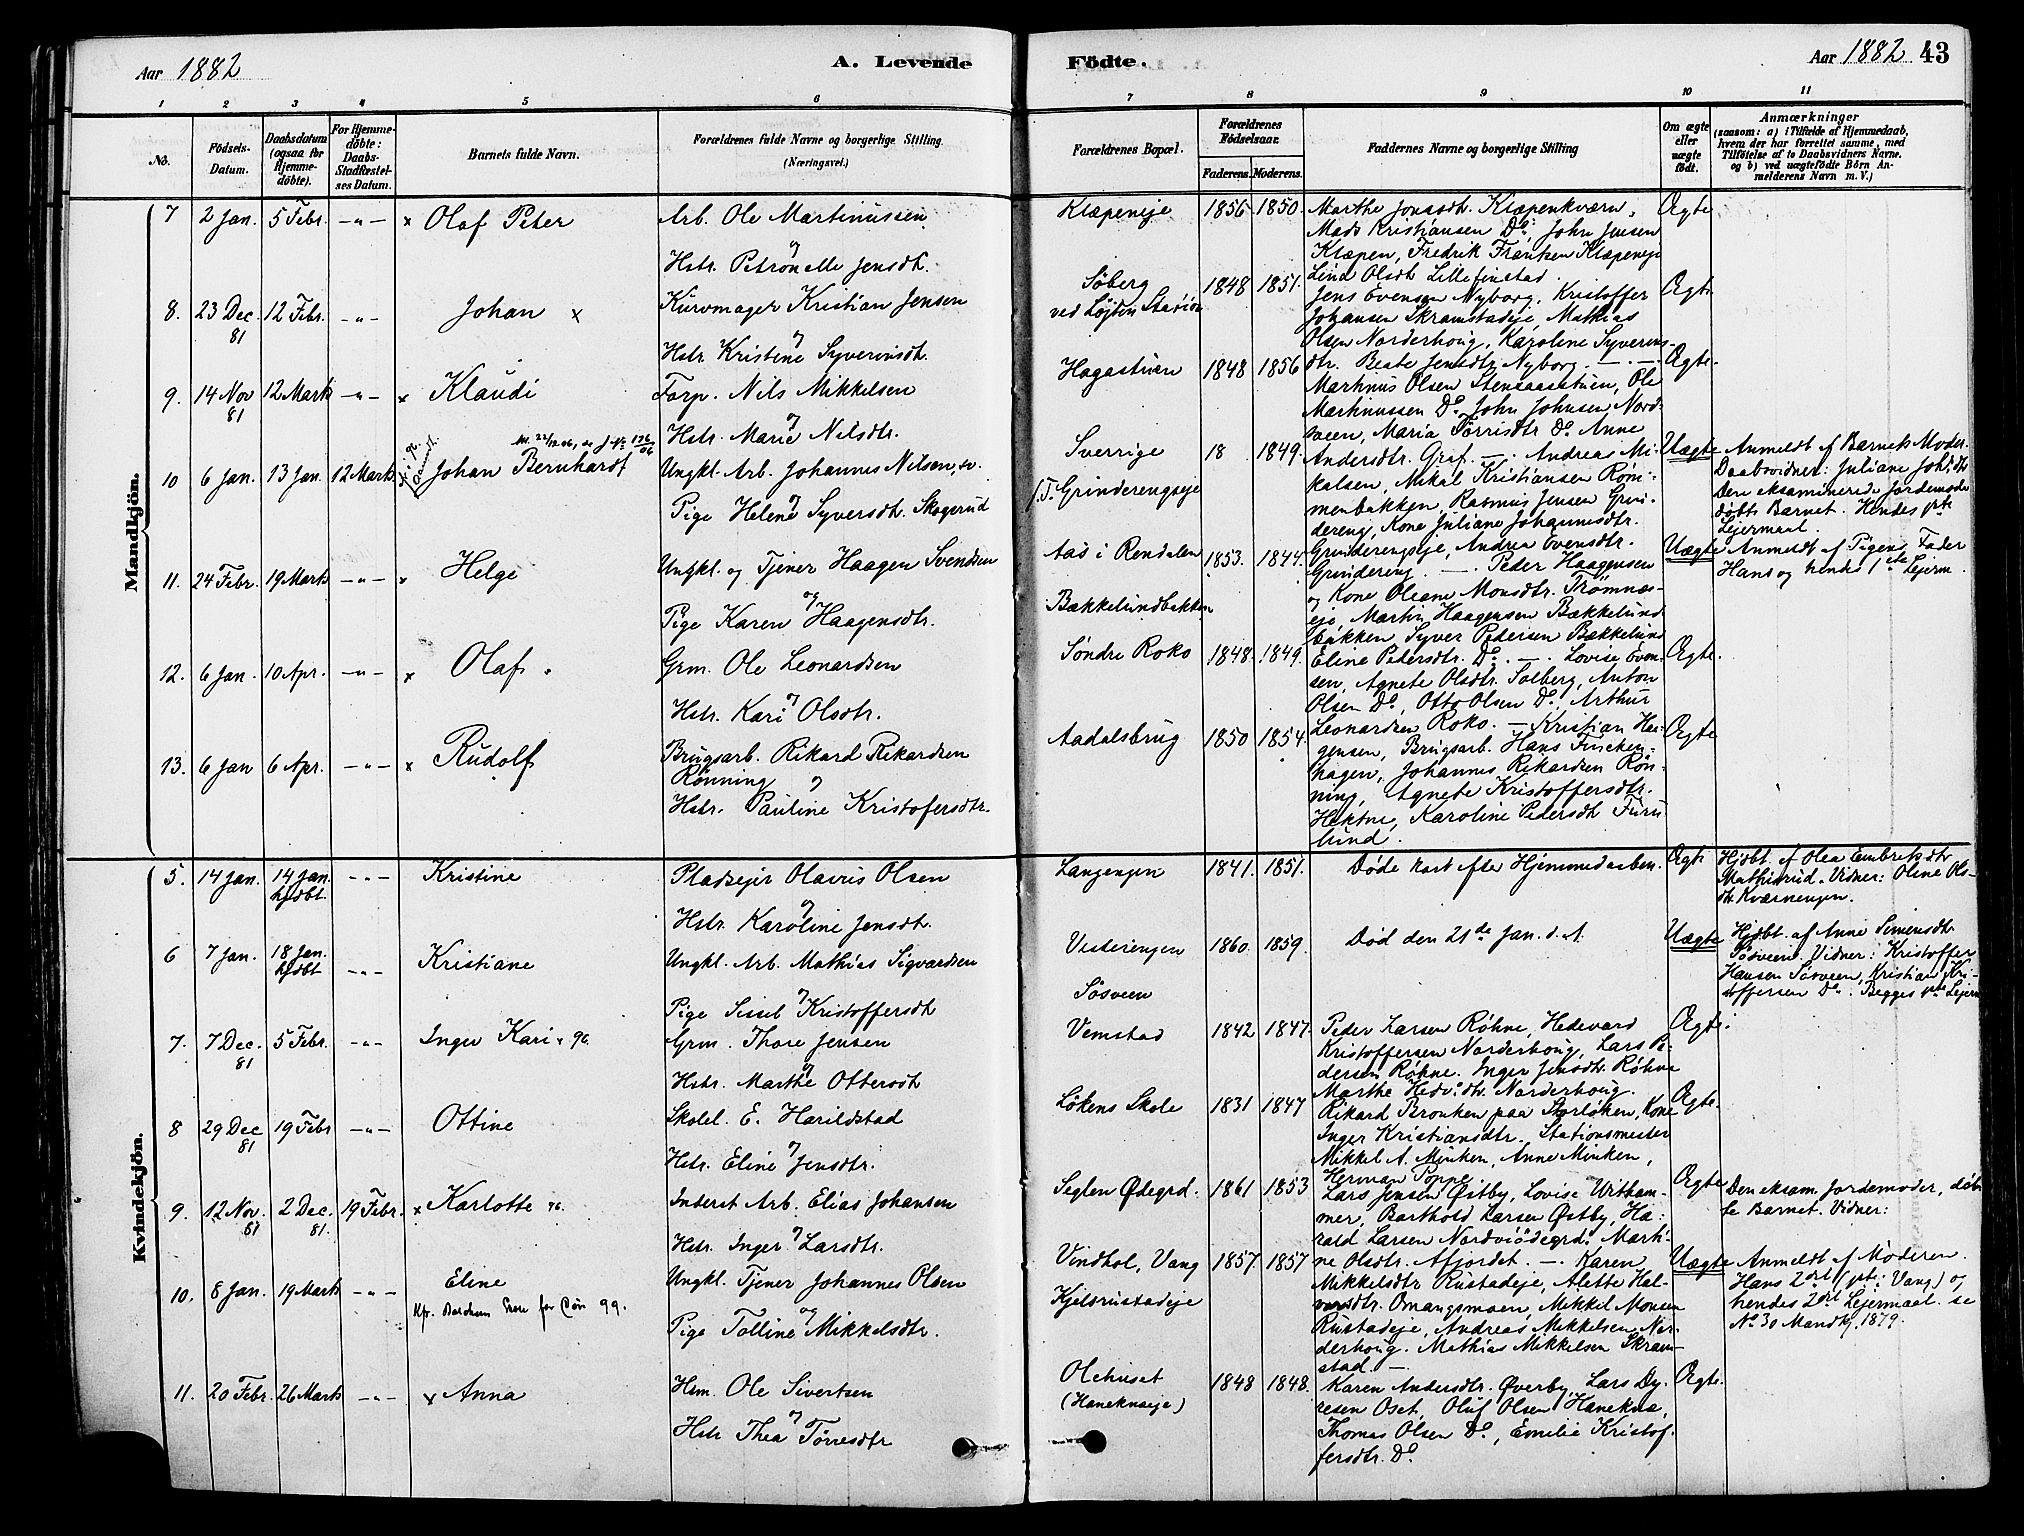 Aar 1882
A. Levende
Födte.
Aar 1882
43
1 2 3 4 5 6 7 8 9 10 11
No.
Födsels-Datum.
Daabsdatum (ogsaa for Hjemme-döbte).
For Hjemme-döbte: Daabs-Stadfæstel-ses Datum.
Barnets fulde Navn.
Forældrenes fulde Navne og borgerlige Stilling.
(Næringsvei.)
Forældrenes Bopæl.
Forældrenes Födselsaar.
Faderens. Moderens.
Faddernes Navne og borgerlige Stilling
Om ægte eller uægte födt.
Anmærkninger
(saasom: a) i Tilfælde af Hjemmedaab,
hvem der har forrettet samme, med
Tilföielse af to Daabsvidners Navne.
og b) ved uægtefödte Börn An-
melderens Navn m. V.)
Mandkjön.
7 2 Jan. 5 Febr. -"- x Olaf Peter
Arb. Ole Martinussen
og
Hstr. Petronelle Jensdt.
Klæpeneje 1856 1850.
Marthe Jonsdt. Klæpenkværn,
Mads Kristiansen Do, John Jensen
Klæpen, Fredrik Frantzen Klæpeneje
Lind Olsdt Lillefinstad.
Ægte
8. 23 Dec. 81 12 Febr. -"- Johan x
Kurvmager Kristian Jensen
og
Hstr. Kristine Syverinsdt.
Söberg
ved Löjten Station
1848 1851.
Jens Evensen Nyborg, Kristoffer
Johansen Skramstadeje, Mathias
Olsen Norderhoug, Karoline Syverins-
dtr. Beate Jensdt. Nyborg.
Ægte
9. 14 Nov 81 12 Marts -"- x Klaudi
Forp. Nils Mikkelsen
og
Hstr. Marie Nilsdtr.
Hagastuen 1848 1856
Martinus Olsen Stensaasstuen, Ole
Martinussen Do. John Johnsen Nord-
sveen, Maria Torrisdtr Do. Anne
Andersdtr. Graf.
Ægte.
10 6 Jan. 13 Jan. 12 Marts Johan Bernhardt
Ungkl. Arb. Johannes Nilsen, sv.
og
Pige Helene Syversdt. Skogerud
Sverrige
Grinderengseje
18 1849.
Andreas Mi-
kalsen, Mikal Kristiansen Røn-
menbakken, Rasmus Jensen Grin-
dereng, Kone Juliane Johannesdtr.
Grinderengseje, Andrea Evensdtr.
Grindereng.
Uægte
Anmeldt af Barnets Moder.
Daabsvidner: Juliane Johsdt
Den eksaminerede Jordemoder
döbt Barnet. Hendes 1ste
Lejermaal.
11. 24 Febr. 19 Marts -"- x Helge
Ungkl. og Tjener Haagen Svendsen
og
Pige Karen Haagensdtr.
Aas i Rendalen
Bækkelundbakken
1853. 1844.
Peder Haagensen
og Kone Oleane Monsdtr. Trömnæs-
eje, Martin Haagensen Bækkelund
bakken Syver Pedersen Bækkelund
Eline Pedersdtr. Do.
Uægte
Anmeldt af Pigens Fader
Hans og hendes 1ste Lejerm.
12. 6 Jan. 10 Apr. -"- x Olaf
Grm. Ole Leonardsen
og
Hstr. Kari Olsdtr.
Söndre Roko 1848. 1849.
Lovise Even-
sen, Agnete Olsdtr. Solberg, Anton
Olsen Do, Otto Olsen Do, Arthur
Leonardsen Roko.
Ægte.
13. 6 Jan 6 Apr. -"- x Rudolf
Brugsarb. Rikard Rikardsen
Rönning
og
Hstr. Pauline Kristofersdtr.
Aadalsbrug 1850 1854.
Kristian Haa-
gensen, Brugsarb. Hans Fincken-
hagen, Johannes Rikardsen Røn-
ning, Agnete Kristoffersdtr.
Hektne, Karoline Pedersdt Furu-
lund.
Ægte
Kvindekjön.
5. 14 Jan. 14 Jan. hjdbt. -"- Kristine
Pladsejer Olavus Olsen
og
Hstr. Karoline Jensdt.
Langengen 1841. 1851.
Döde kort efter Hjemmedaaben.
Ægte
Hjdbt. af Olea Embretsdtr
Mathisrud. Vidner: Oline Ols-
dt. Kværnengen.
6 7 Jan. 18 Jan. hjdbt -"- Kristiane
Ungkl. Arb. Mathias Sigvardsen
og
Pige Sissel Kristoffersdt
Vesterengen
Sösveen
1860. 1859.
Död den 21de Jan. d. A.
Uægte
Hjdbt. af Anne Simensdt.
Sösveen. Vidner: Kristoffer
Hansen Sösveen, Kristian Kri-
stoffersen Do. Begges 1ste Lejerm
7. 7 Dec. 81 5 Febr. -"- Inger Kari
Grm. Thore Jensen
og
Hstr. Marthe Ottersdt
Vemstad 1842 1847.
Peder Larsen Røhne, Hedevard
Kristoffersen Norderhoug, Lars Pe-
dersen Røhne. Inger Jensdt. Røhne
Marthe Hedv.dt. Norderhoug.
Ægte.
8 29 Dec 81 19 Febr -"- Ottine
Skolel. E. Harildstad
og
Hstr. Eline Jensdtr.
Lökens Skole 1831 1847
Rikard Bronken paa Storlöken, Kone
Inger Kristiansdtr. Stationsmester
Mikkel A. Minken, Anne Minken,
Herman Poppe
Ægte.
9. 12 Nov. 81 2 Dec. 81. 19 Febr. x Karlotte
Inderst Arb. Elias Johansen
og
Hstr. Inger Larsdtr.
Seglen Ødegrd. 1861 1853
Lars Jensen Østby, Lovise Uitham-
mer, Barthold Larsen Østby, Ha-
rald Larsen Nordviödegrd. Marti-
ne Olsdtr. Afjordet.
Ægte
Den eksam. Jordemoder, döb-
te Barnet. Vidner:
10. 8 Jan. 19 Marts -"- Eline
Ungkl. Tjener Johannes Olsen
og
Pige Tolline Mikkelsdtr.
Vindhol, Vang
Kjelsrustadeje
1857. 1857
Karen
Mikkelsdtr Rustadeje, Alette Hal-
vorsdtr. Omangsmoen, Mikkel Monsen
Rustadeje, Andreas Mikkelsen Nor-
derhoug. Mathias Mikkelsen Skram-
stad.
Uægte
Anmeldt af Moderen.
Hans 2det (1ste: Vang) og
hendes 2det Lejermaal. se
No 30 Mandkj. 1879.
11. 20 Febr. 26 Marts -"- x Anna
Hsm. Ole Sivertsen
og
Hstr Thea Torresdtr
Olehuset
(Haneknæeje)
1848 1848.
Karen Andersdtr. Øverby, Lars Dy-
resen Oset. Oluf Olsen Haneknæ,
Thomas Olsen Do, Emilie Kristof-
fersdtr. Do
Ægte.